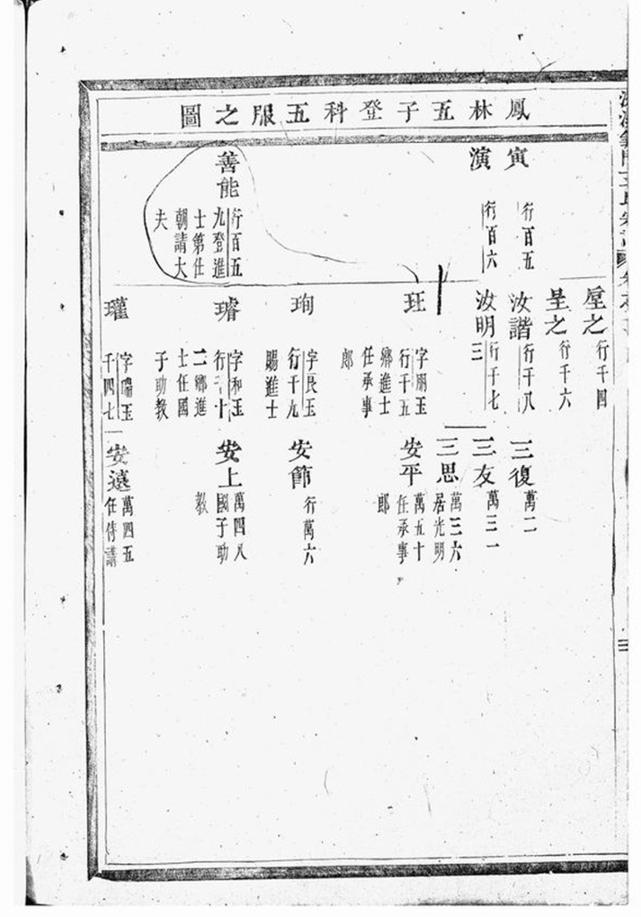 鳳林五子登科五服之圖
寅 行百五
演 行百六
善能 行百五九登進士第仕朝請大夫
垕之 行千四
呈之 行千六
汝諧 行千八
汝明 行千七三
玨 字朋玉行千五鄉進士任承事郎
珣 字良玉行千九賜進士
璿 字和玉行千十二鄉進士任國子助教
瓘 字瑞玉千四七
三復 萬二
三友 萬三一
三思 萬三六居光明
安平 萬五十任承事郎
安節 行萬六
安上 萬四八國子助教
安遠 萬四五任侍講